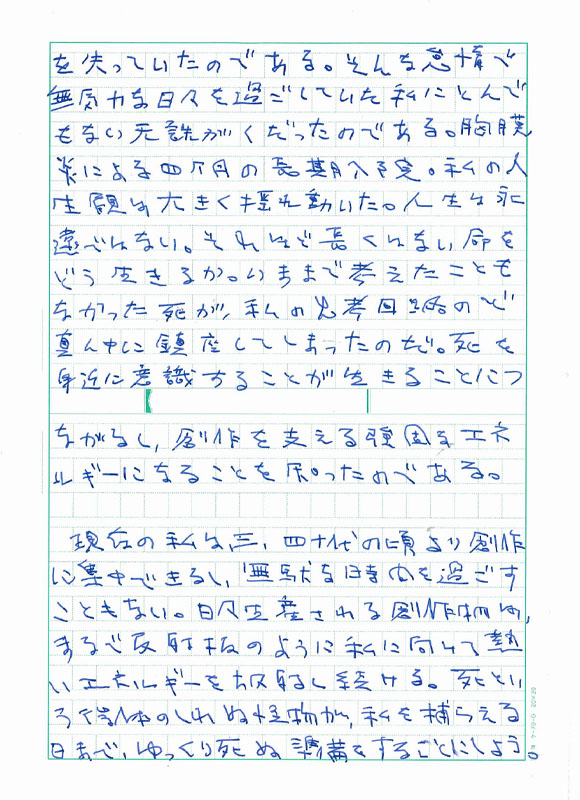 を失っていたのである。そんな怠惰で
無気力な日々を過ごしていた私にとんで
もない天誅がくだったのである。胸膜
炎による四ケ月の長期入院。私の人
生観は大きく揺れ動いた。人生は永
遠ではない。それほど長くはない命を
どう生きるか。いままで考えたことも
なかった死が、私の思考回路のど
真ん中に鎮座してしまったのだ。死を
身近に意識することが生きることにつ
ながるし、創作を支える強固なエネ
ルギーになることを知ったのである。
現在の私は三、四十代の頃より創作
に集中できるし、無駄な時間を過ごす
こともない。日々生産される創作物は、
まるで反射板のように私に向けて熱
いエネルギーを放射し続ける。死とい
う得体のしれぬ怪物が、私を捕らえる
日まで、ゆっくり死ぬ準備をすることにしよう。
20×20